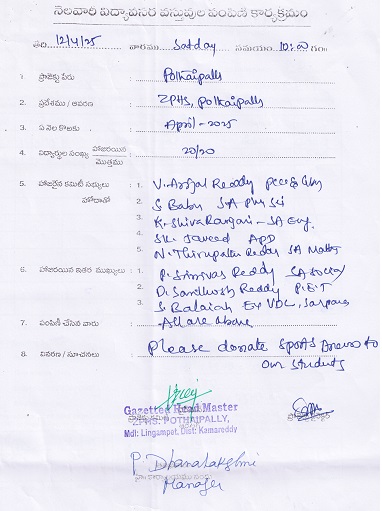 నెలవారీ విద్యావసర వస్తువుల పంపిణీ కార్యక్రమం
తేది 12/4/25 వారము Satday సమయం 10:00 గం
1. ప్రాజెక్టు పేరు Pothaipally
2. ప్రదేశము / ఆవరణ ZPHS, Pothaipally
3. ఏ నెల కొఱకు April-2025
4. విద్యార్థుల సంఖ్య హాజరయిన / మొత్తము 20/20
5. హాజరైన కమిటీ సభ్యులు 1. V. Reddy
హోదాతో 2. S Babu SA Phy Sci
3. K. Shiva Rangani - SA Eng.
4. SK. Javeed
5. N. Thirupathi Reddy SA Maths
6. హాజరయిన ఇతర ముఖ్యులు 1. P. Srinivas Reddy SA
2. D. Santhosh Reddy P.E.T
3. S Balaiah Ex VDC,
7. పంపిణీ చేసిన వారు All are above
8. వివరణ / సూచనలు Please donate sports to
our students
Gazetted Head Master
ZPHS: POTHAIPALLY,
Mdl: Lingampet, Dist: Kamareddy
P. Dhanalakshmi
Manager